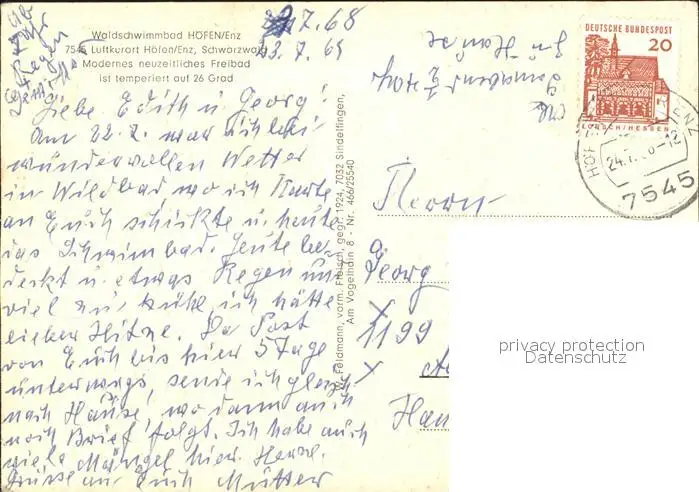 7.68
23.7.68
Waldschwimmbad HÖFEN/Enz
7545 Luftkurort Höfen/Enz, Schwarzwald
Modernes neuzeitliches Freibad
ist temperiert auf 26 Grad
Liebe Edith u. Georg!
Am 22.7. war ich bei
wundervollen Wetter
in Wildbad wo ich Karte
an Euch schickte u. heute
das Schwimbad. Heute be-
deckt u. etwas Regen und
viel zu kühl, ich hätte
lieber Hitze. Da Post
von Euch bis hier 5 Tage
unterwegs, sende ich gleich
nach Hause, wo dann auch
noch Brief folgt. Ich habe auch
viele Mängel hier. Herzl.
Grüsse an Euch Mutter
W. Feldmann, vorm. Fleisch, gegr. 1924, 7032 Sindelfingen,
Am Vogelhain 8 · Nr. 466/25540
zu Hause
DEUTSCHE BUNDESPOST
20
LORSCH/HESSEN
24.7.68-12
7545
Herrn
Georg
1199
Han
privacy protection
Datenschutz